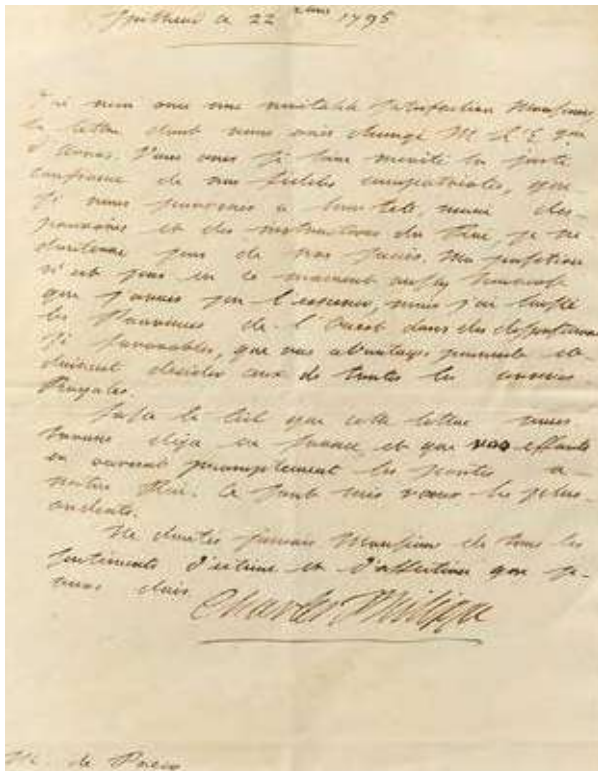 ce 22 1795
J'ai reçu avec une véritable satisfaction Monsieur
la lettre dont vous avez chargé M. l'E. Gen
d' . Vous avez si bien mérité la juste
confiance de nos fidèles compatriotes, que
si vous parvenez a leur tête, muni des
pouvoirs et des instructions du Roi, je ne
doute pas de nos succès. Ma position
n'est pas en ce moment aussy
que j'avais pu l'esperer, mais j'ai laissé
les Provinces de l'Ouest dans des dispositions
si favorables, que vos avantages peuvent et
doivent decider ceux de toutes les armées
Royales.
Fasse le Ciel que cette lettre vous
trouve deja en france et que vos efforts
en ouvrent promptement les portes a
notre Roi. Ce sont mes vœux les plus
ardents.
Ne doutez jamais Monsieur de tous les
sentiments d'estime et d'affection que je
vous dois.
Charles Philippe
M. de